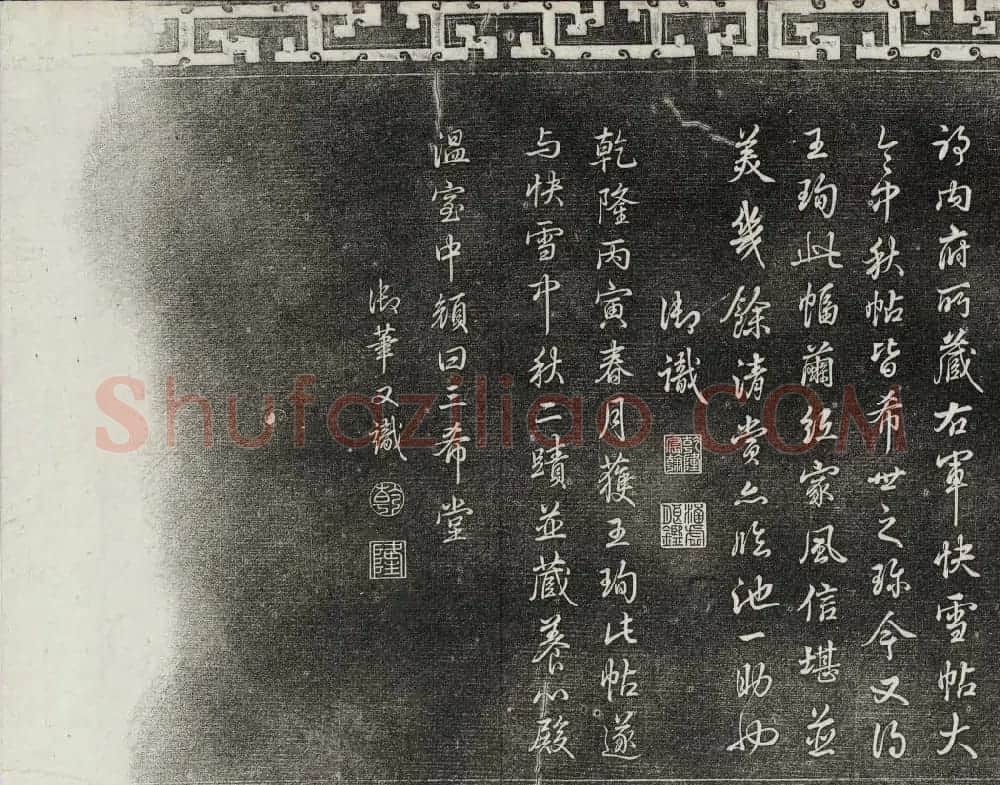 耶內府所藏右軍快雪帖大
令中秋帖皆希世之珎今又得
王珣此幅繭紙家風信堪並
美幾餘清賞亦臨池一助也
御識
乾隆宸翰
涵虛朗鑑
乾隆丙寅春月獲王珣此帖遂
与快雪中秋二蹟並藏養心殿
溫室中顏曰三希堂
御筆又識
乾
隆
Shufaziliao.COM